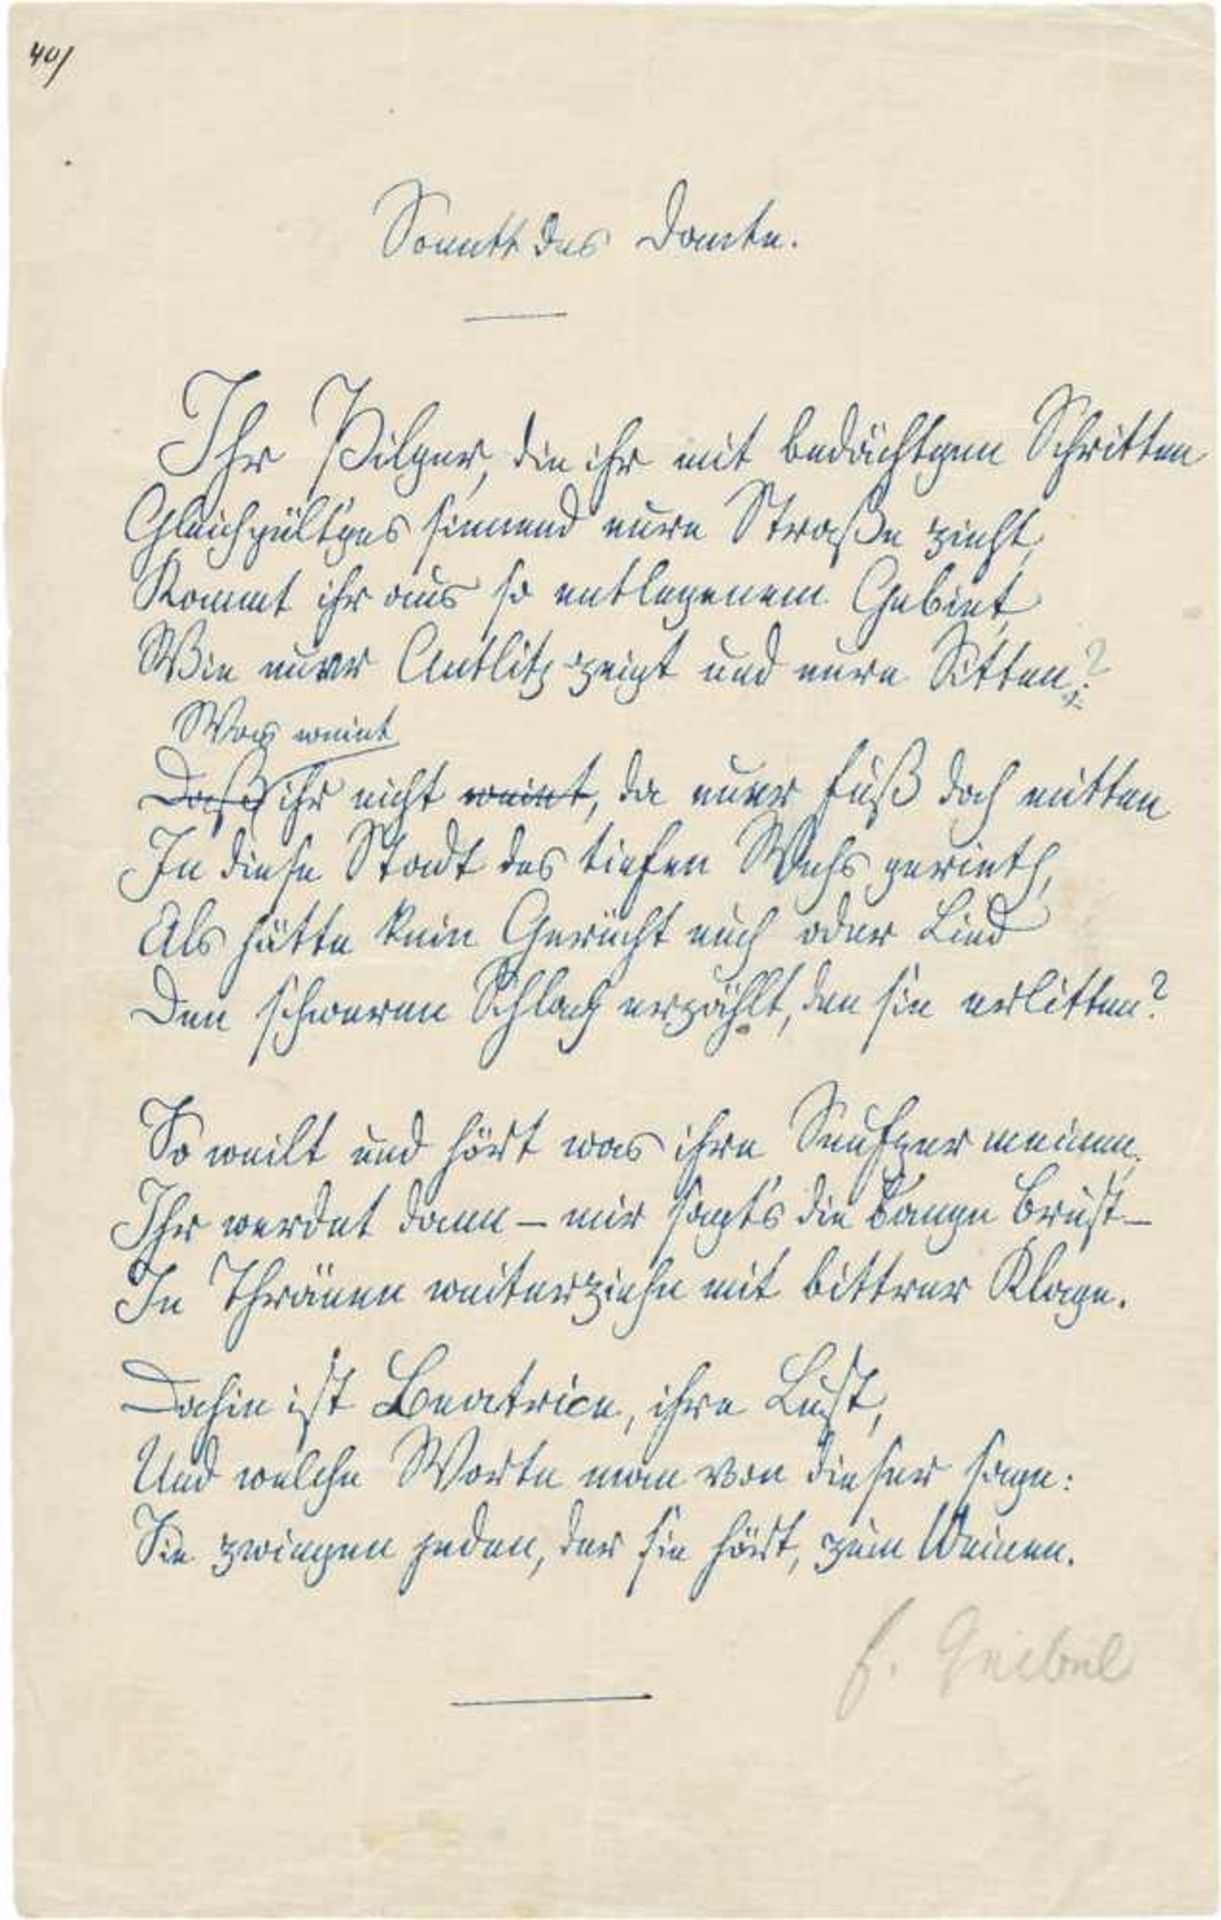 40/
Sonett des Dante.
Ihr Pilger, die ihr mit bedächtgem Schritten
Gleichgült'ges sinnend eure Straße zieht,
Kommt ihr aus so entlegenem Gebiet,
Wie euer Antlitz zeigt und eure Sitten?
Was weint
Daß ihr nicht weint, da euer Fuß doch mitten
In diese Stadt des tiefen Wehs gerieth,
Als hätte kein Gerücht euch oder Lied
Den schweren Schlag erzählt, den sie erlitten?
So weilt und hört was ihre Seufzer meinen,
Ihr werdet dann – mir sagt's die bange Brust –
In Thränen weiterziehn mit bittrer Klage.
Dahin ist Beatrice, ihre Lust,
Und welche Worte man von dieser sage:
Sie zwingen jeden, der sie hört, zum Weinen.
E. Geibel